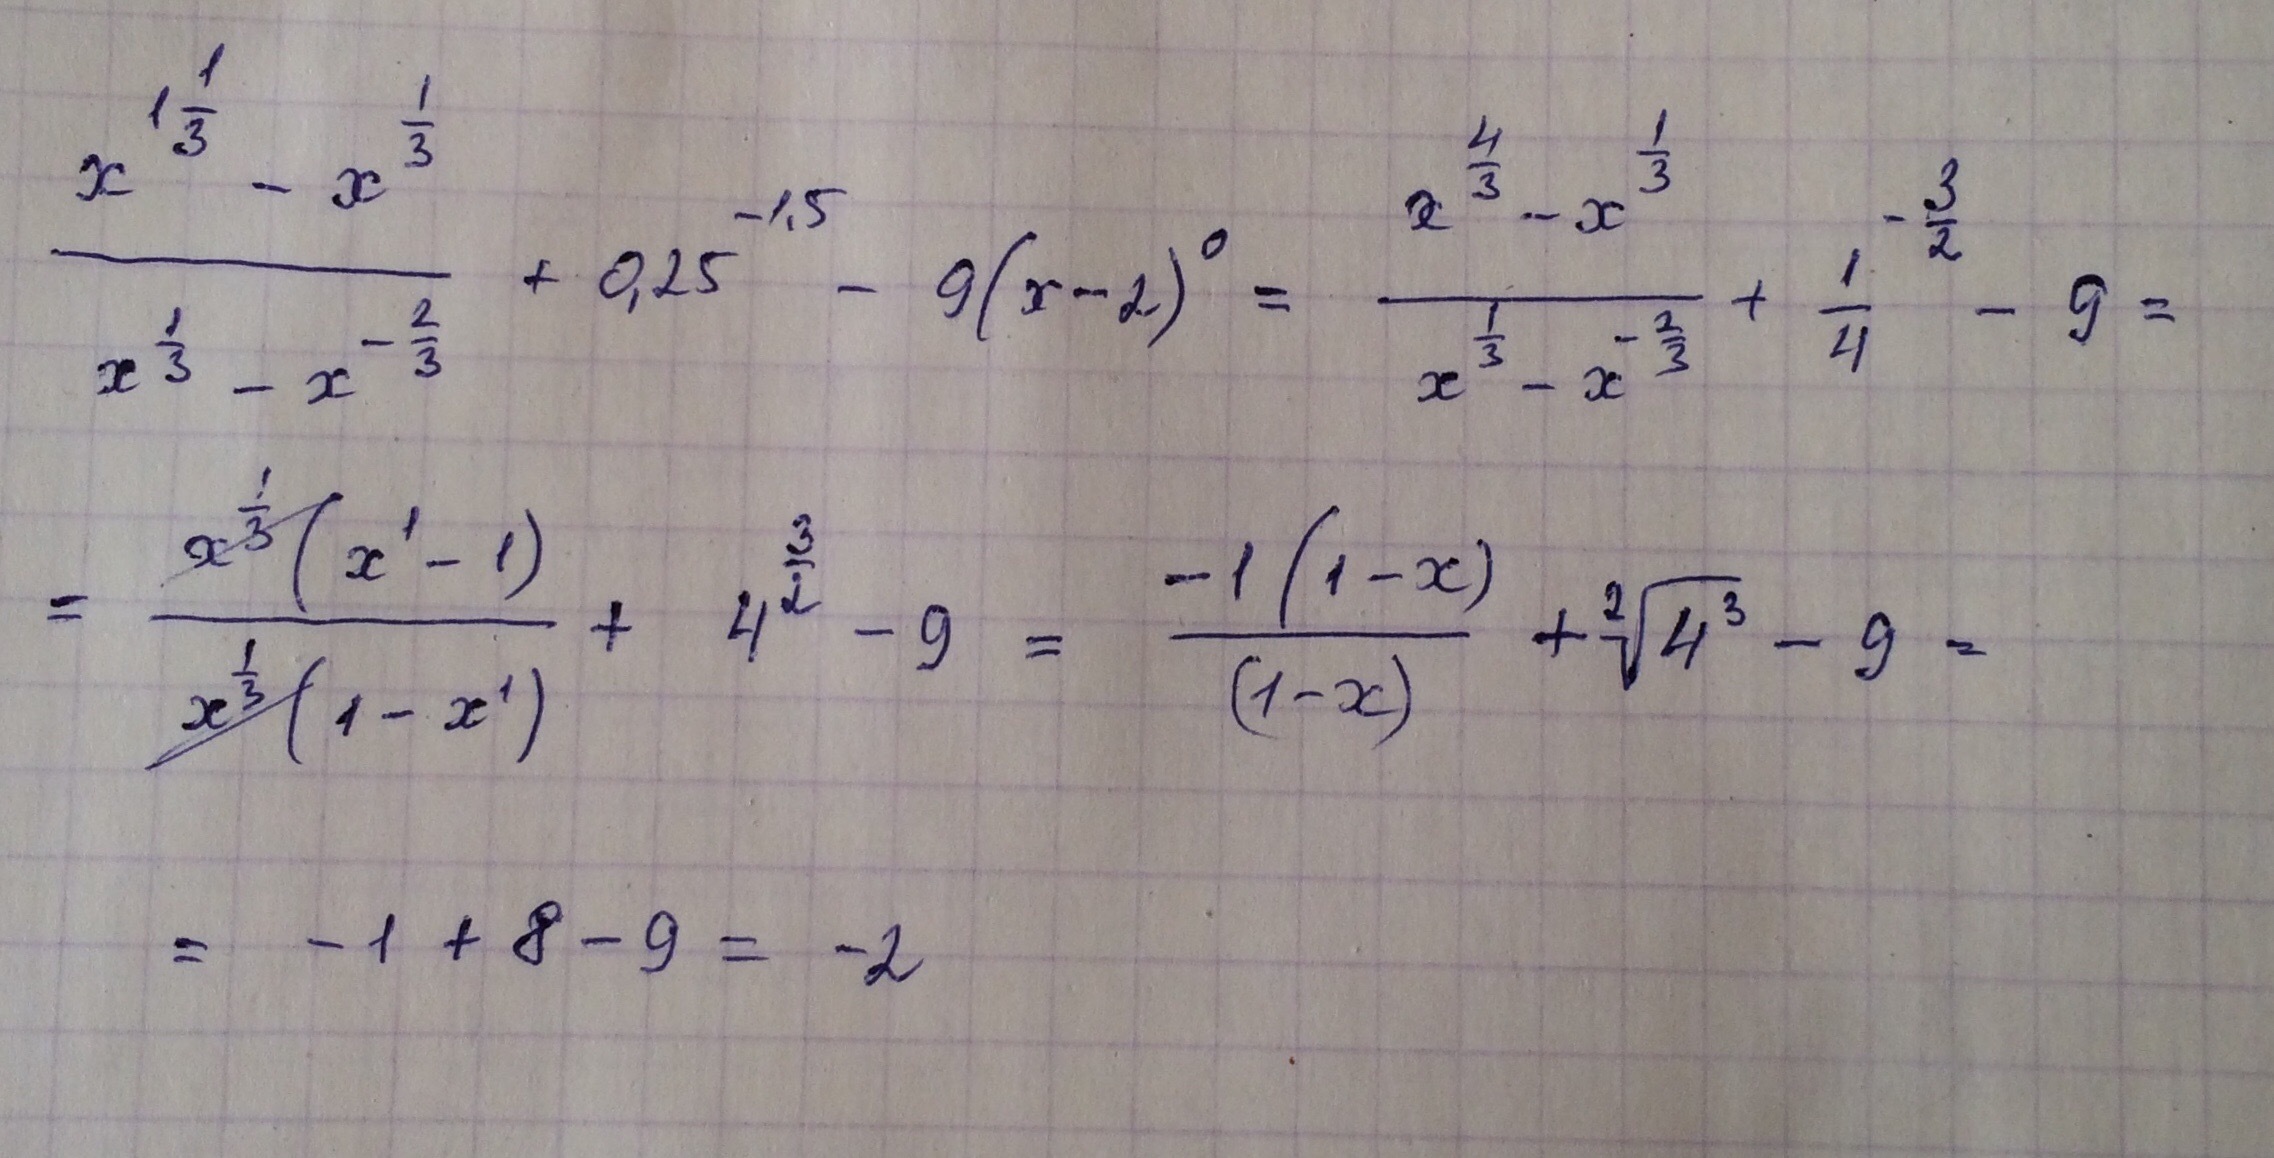 (x^(1 1/3) - x^(1/3))/(x^(1/3) - x^(-2/3)) + 0,25^(-1,5) - 9(x-2)^0 = (x^(4/3) - x^(1/3))/(x^(1/3) - x^(-2/3)) + 1/4^(-3/2) - 9 =
= (x^(1/3)(x^1 - 1))/(x^(1/3)(1 - x^1)) + 4^(3/2) - 9 = (-1(1-x))/((1-x)) + ²√(4^3) - 9 =
= -1 + 8 - 9 = -2